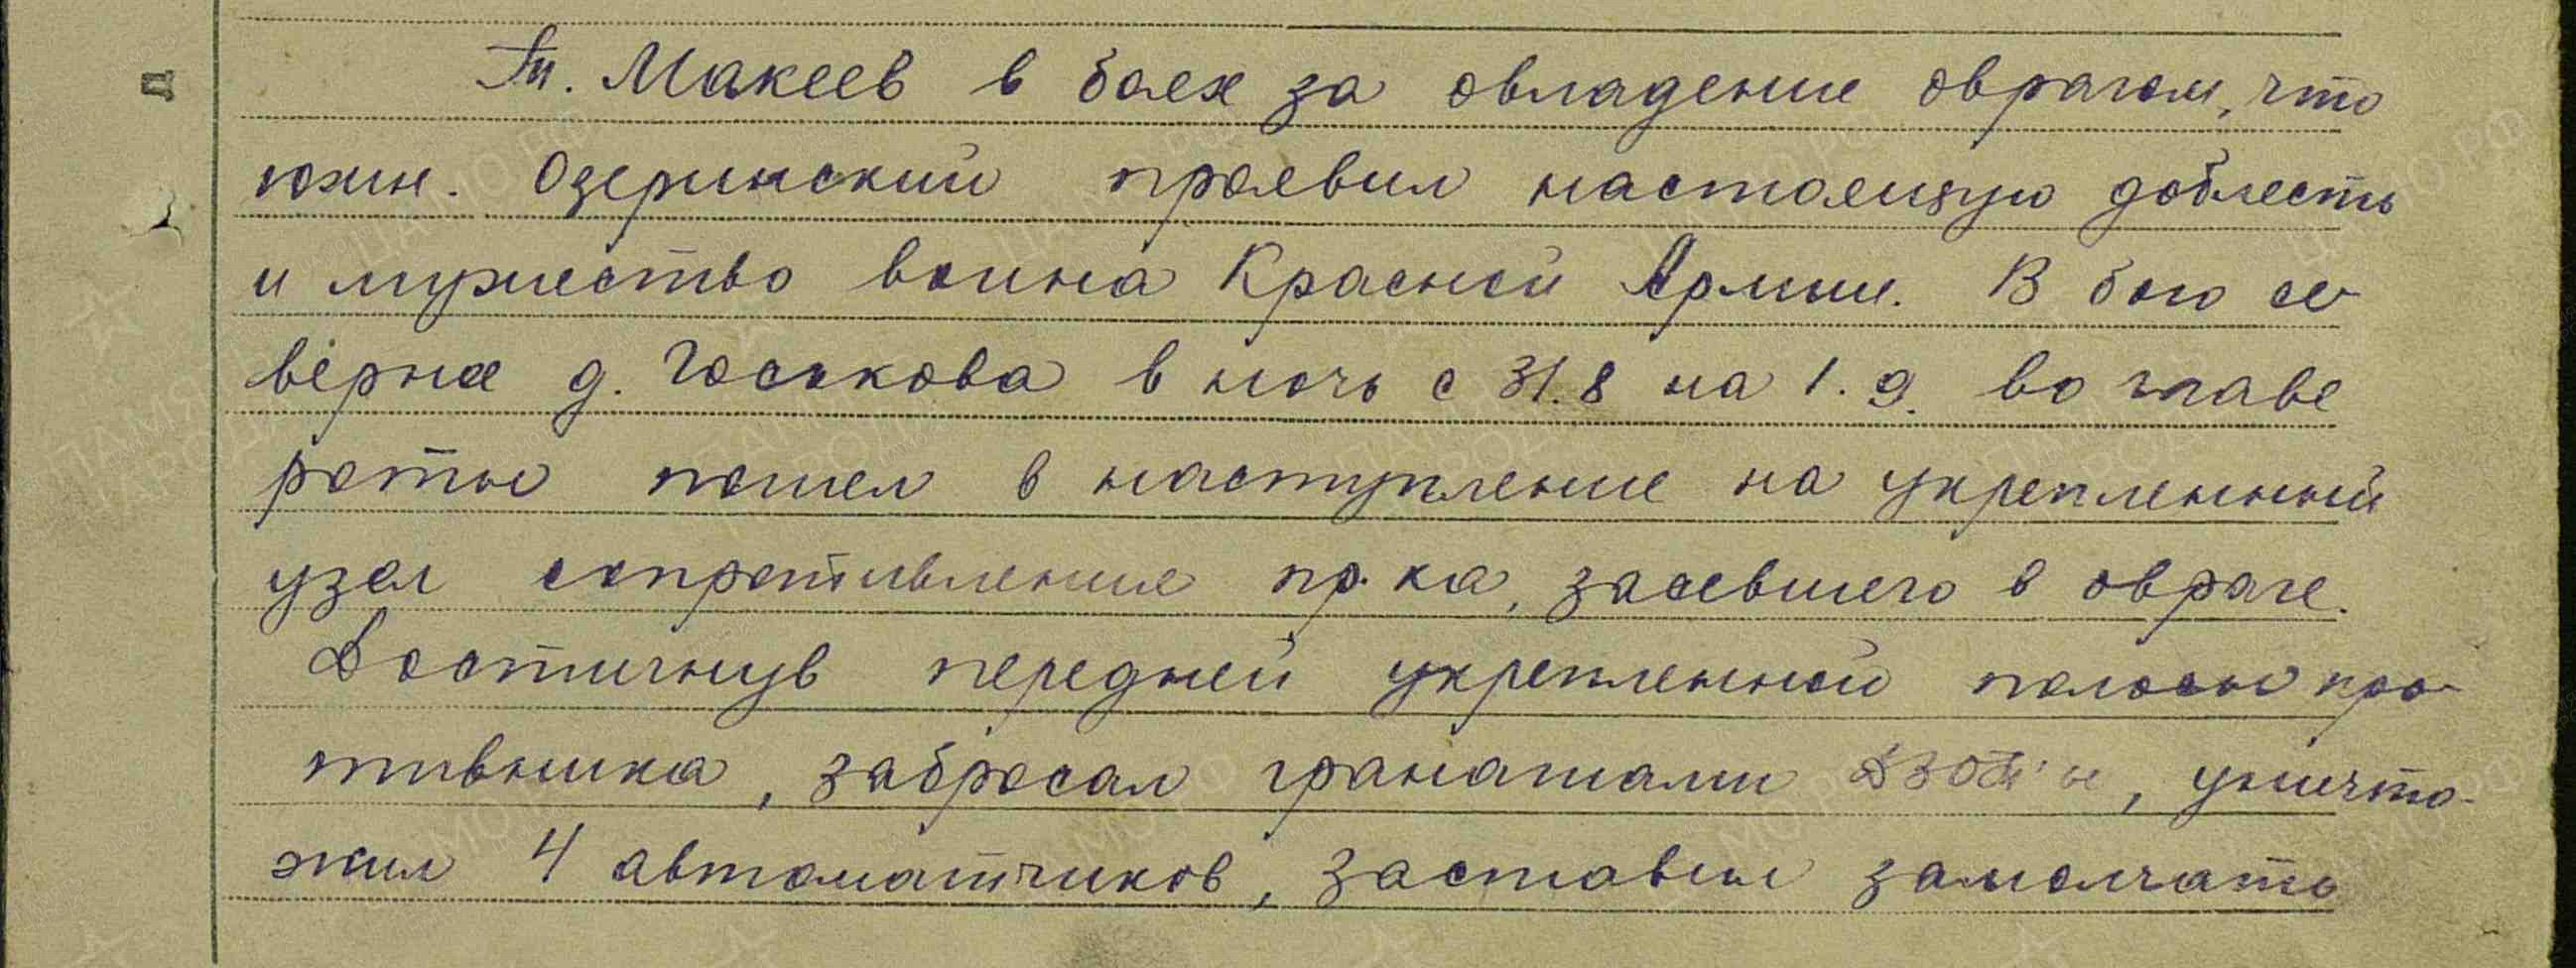 Тт. Макеев в боях за овладение оврагом, что
южн. Озеринский проявил настоящую доблесть
и мужество воина Красной Армии. В бою се-
вернее д. Госькова в ночь с 31.8 на 1.9. во главе
роты пошел в наступление на укрепленный
узел сопротивления пр-ка, засевшего в овраге.
Достигнув передней укрепленной полосы про-
тивника, забросал гранатами ДЗОТ'ы, уничто-
жил 4 автоматчиков, заставил замолчать